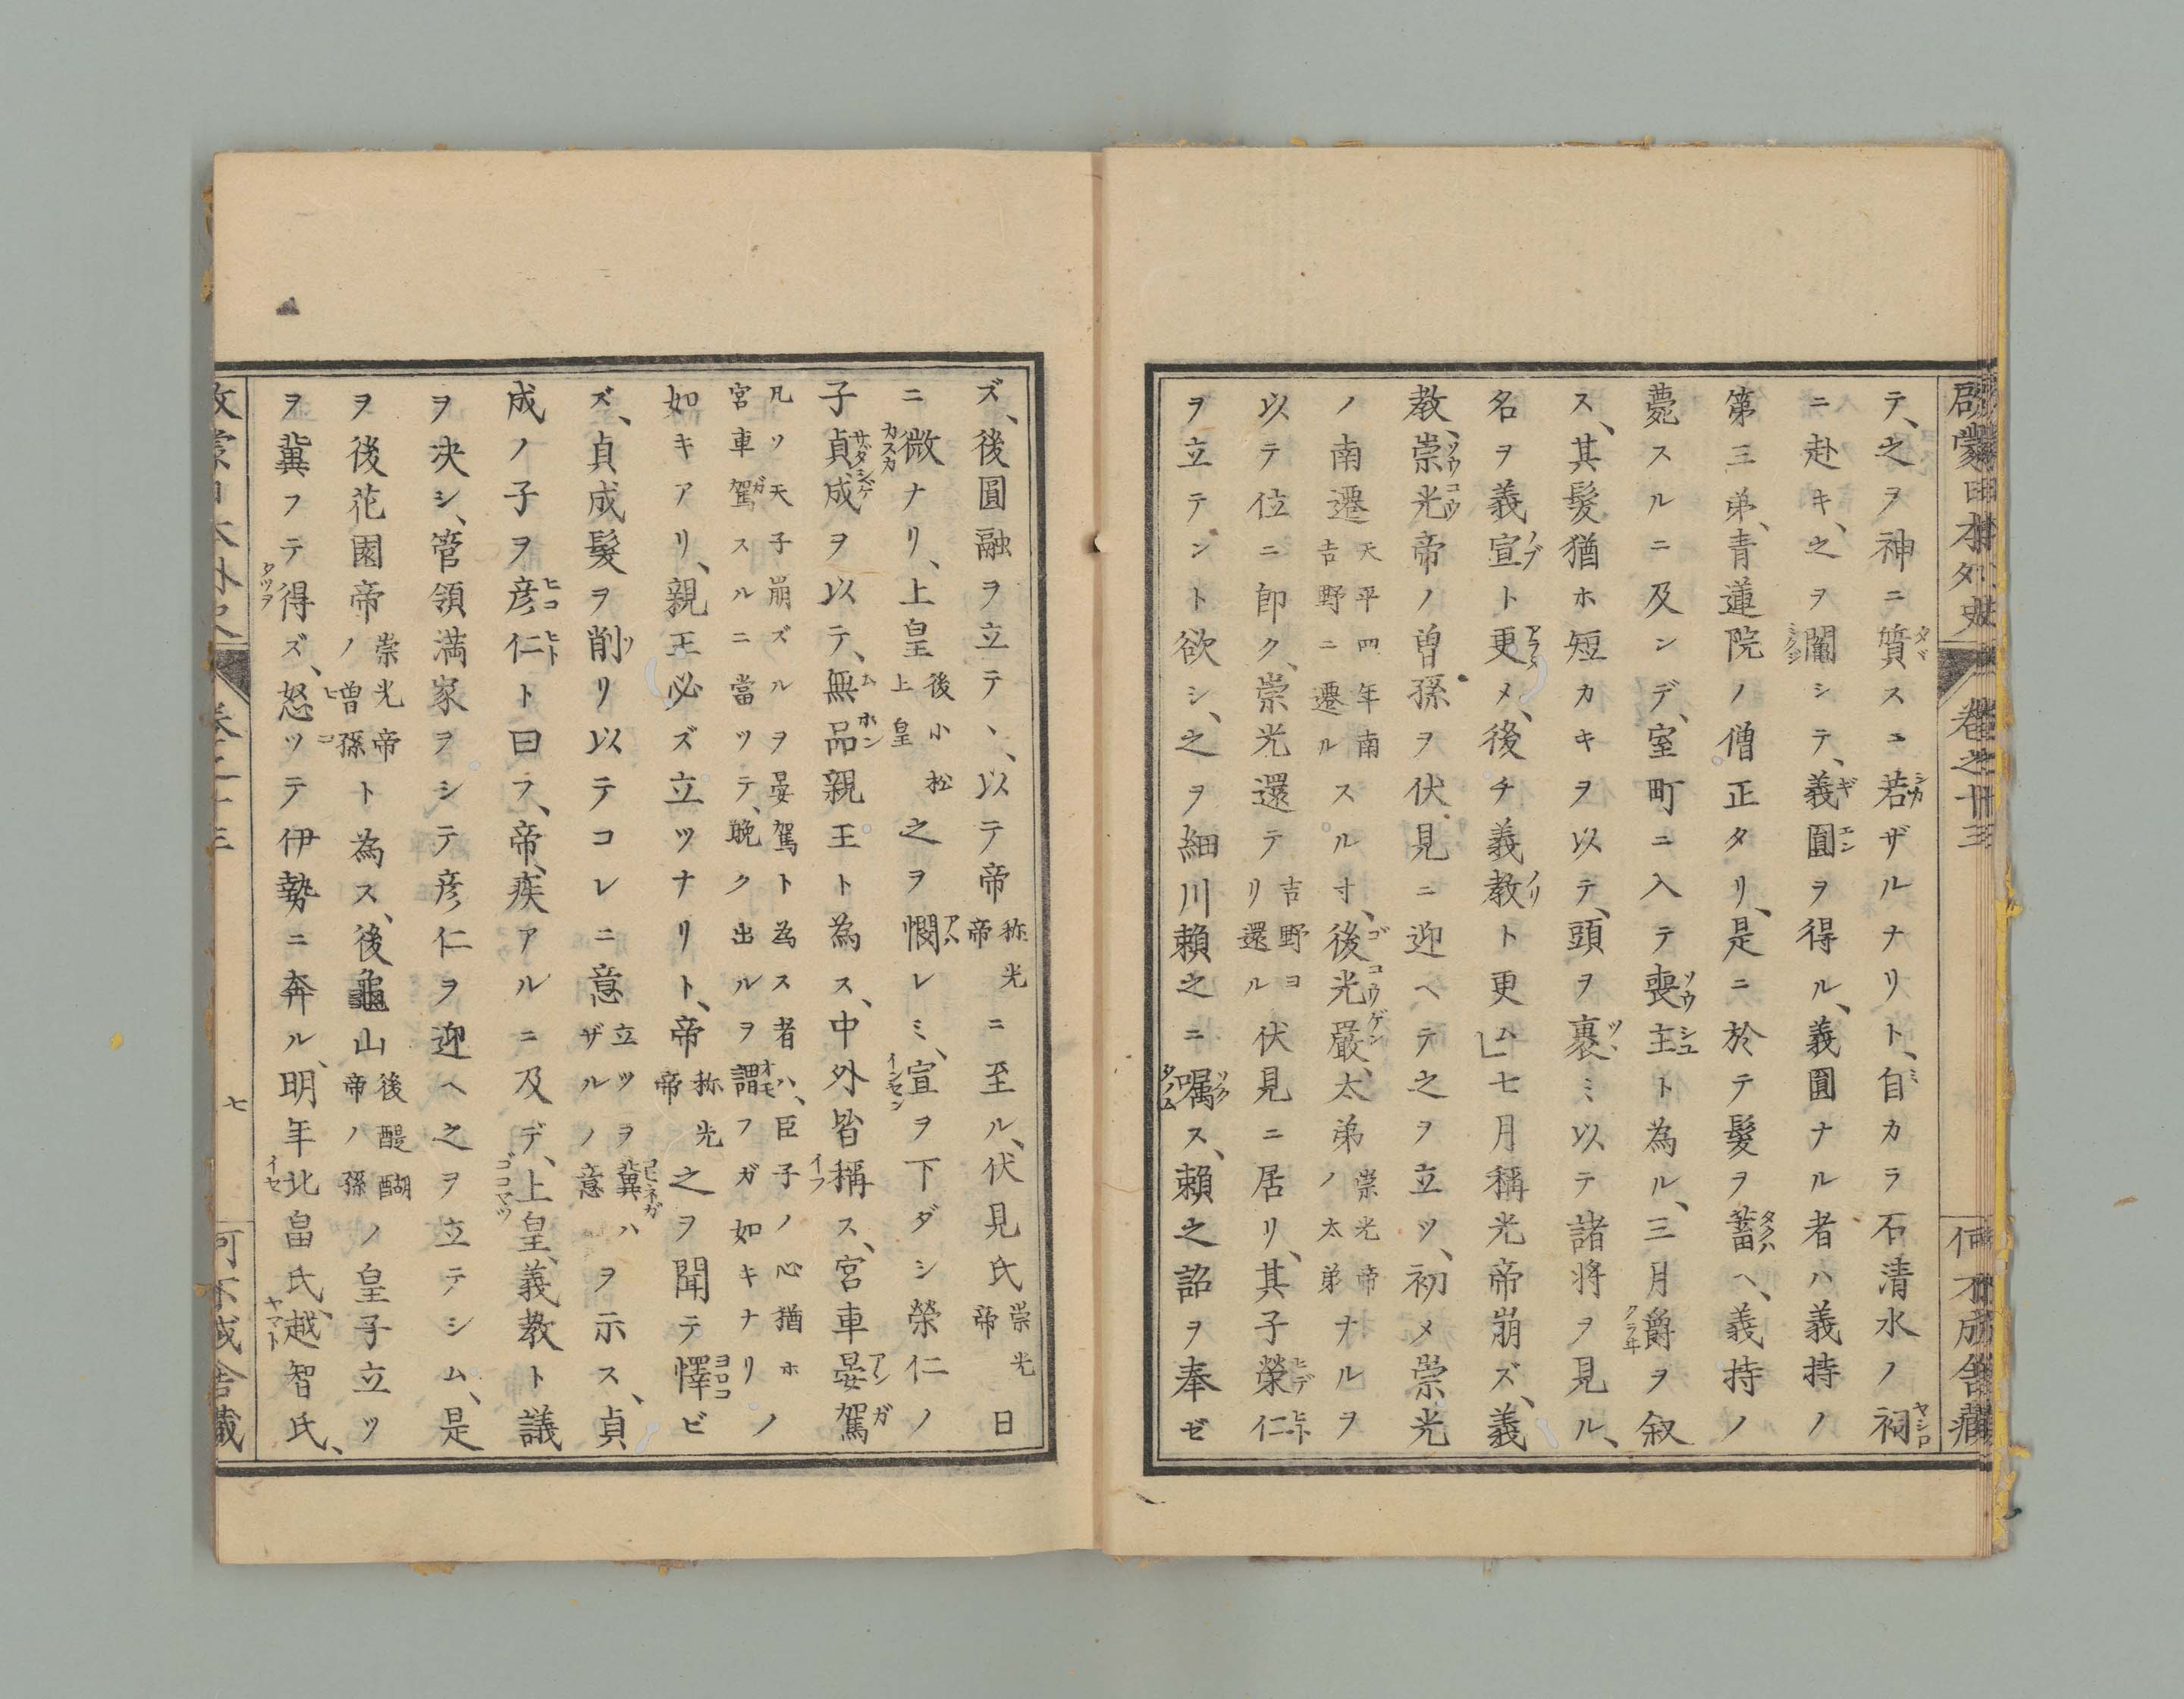 啓蒙日本外史 卷之廿三 何不成舍藏
テ、之ヲ神ニ質スニ若ザルナリト、自カラ石清水ノ祠
ニ赴キ、之ヲ鬮シテ、義圓ヲ得ル、義圓ナル者ハ義持ノ
第三弟、青蓮院ノ僧正タリ、是ニ於テ髮ヲ蓄ヘ、義持ノ
薨スルニ及ンデ、室町ニ入テ喪主ト為ル、三月爵ヲ叙
ス、其髮猶ホ短カキヲ以テ、頭ヲ裹ミ以テ諸将ヲ見ル、
名ヲ義宣ト更メ、後チ義教ト更ム」七月稱光帝崩ズ、義
教、崇光帝ノ曽孫ヲ伏見ニ迎ヘテ之ヲ立ツ、初メ崇光
ノ南遷天平四年南吉野ニ遷ルスル寸、後光嚴、太弟崇光帝ノ太弟ナルヲ
以テ位ニ卽ク、崇光還テ吉野ヨリ還ル伏見ニ居リ、其子榮仁
ヲ立テント欲シ、之ヲ細川賴之ニ嘱ス、賴之詔ヲ奉ゼ
ズ、後圓融ヲ立テヽ、以テ帝称光帝ニ至ル、伏見氏崇光帝日
ニ微ナリ、上皇後小松上皇之ヲ憫レミ、宣ヲ下ダシ榮仁ノ
子貞成ヲ以テ、無品親王ト為ス、中外皆稱ス、宮車晏駕
凡ソ天子崩ズルヲ晏駕ト為ス者ハ、臣子ノ心猶ホ
宮車駕スルニ當ツテ、晩ク出ルヲ謂フガ如キナリノ
如キアリ、親王必ズ立ツナリト、帝称光帝之ヲ聞テ懌ビ
ズ、貞成髮ヲ削リ以テコレニ意立ツヲ冀ハザルノ意ヲ示ス、貞
成ノ子ヲ彦仁ト曰フ、帝、疾アルニ及デ、上皇、義教ト議
ヲ決シ、管領満家ヲシテ彦仁ヲ迎ヘ之ヲ立テシム、是
ヲ後花園帝崇光帝ノ曽孫ト為ス、後龜山後醍醐帝ノ孫ノ皇子立ツ
ヲ冀フテ得ズ、怒ツテ伊勢ニ奔ル、明年北畠氏、越智氏、
七